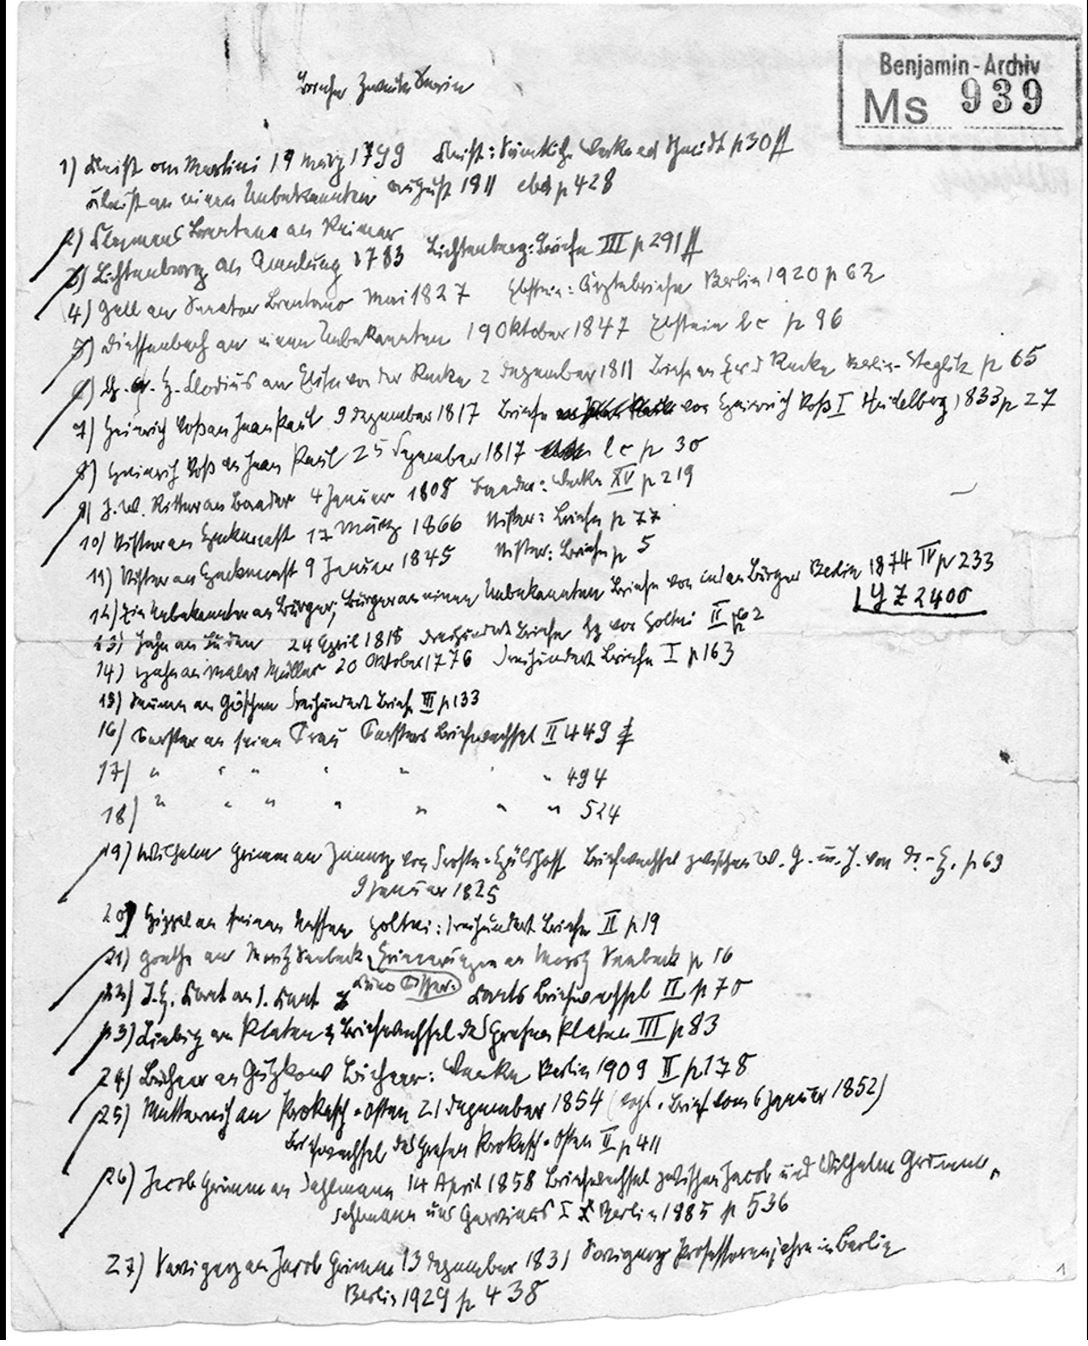 Benjamin-Archiv
Ms 939
Briefe Zweite Serie
1) Kleist an Martini 19 März 1799 Kleist: Sämtliche Werke ed Schmidt p 30 ff
Kleist an einen Unbekannten August 1811 ebd p 428
2) Clemens Brentano an Reimer
3) Lichtenberg an Amelung 1783 Lichtenberg: Briefe III p 291 ff
4) Gall an Senator Brentano Mai 1827 Ebstein: Ärztebriefe Berlin 1920 p 62
5) Dieffenbach an einen Unbekannten 19 Oktober 1847 Ebstein l c p 96
6) Ch. A. H. Clodius an Elisa von der Recke 2 Dezember 1811 Briefe an E v d Recke Berlin-Steglitz p 65
7) Heinrich Voß an Jean Paul 9 Dezember 1817 Briefe von Heinrich Voß I Heidelberg 1833 p 27
8) Heinrich Voß an Jean Paul 25 Dezember 1817 l c p 30
9) J. W. Ritter an Baader 4 Januar 1808 Baader: Werke XV p 219
10) Stifter an Heckenast 17 März 1866 Stifter: Briefe p 77
11) Stifter an Heckenast 9 Januar 1845 Stifter: Briefe p 5
12) Ein Unbekannter an Bürger; Bürger an einen Unbekannten Briefe von und an Bürger Berlin 1874 IV p 233
| YZ 2400
13) Jahn an 24 April 1818 Dreihundert Briefe hg von Holtei II p 62
14) Hahn an Maler Müller 20 Oktober 1776 Dreihundert Briefe I p 163
15) Seume an Göschen Dreihundert Briefe III p 133
16) Forster an seine Frau Forsters Briefwechsel II 449 f
17) " " " " " " " 494
18) " " " " " " " 524
19) Wilhelm Grimm an Jenny von Droste-Hülshoff Briefwechsel zwischen W. G. u. J. von Dr.-H. p 69
9 Januar 1825
20) Hippel an seinen Neffen Holtei: Dreihundert Briefe II p 19
21) Goethe an Moritz Seebeck Erinnerungen an Moritz Seebeck p 16
Kuno Fischer:
22) J. H. Kant an I. Kant Kants Briefwechsel II p 70
23) Liebig an Platen Briefwechsel des Grafen Platen III p 83
24) Büchner an Gutzkow Büchner: Werke Berlin 1909 II p 178
25) Metternich an Prokesch-Osten 21 Dezember 1854 (vgl. Brief vom 6 Januar 1852)
Briefwechsel des Grafen Prokesch-Osten II p 411
26) Jacob Grimm an Dahlmann 14 April 1858 Briefwechsel zwischen Jacob und Wilhelm Grimm,
Dahlmann und Gervinus I Berlin 1885 p 536
27) Savigny an Jacob Grimm 13 Dezember 1831 Savignys Professorenjahre in Berlin
Berlin 1929 p 438
1